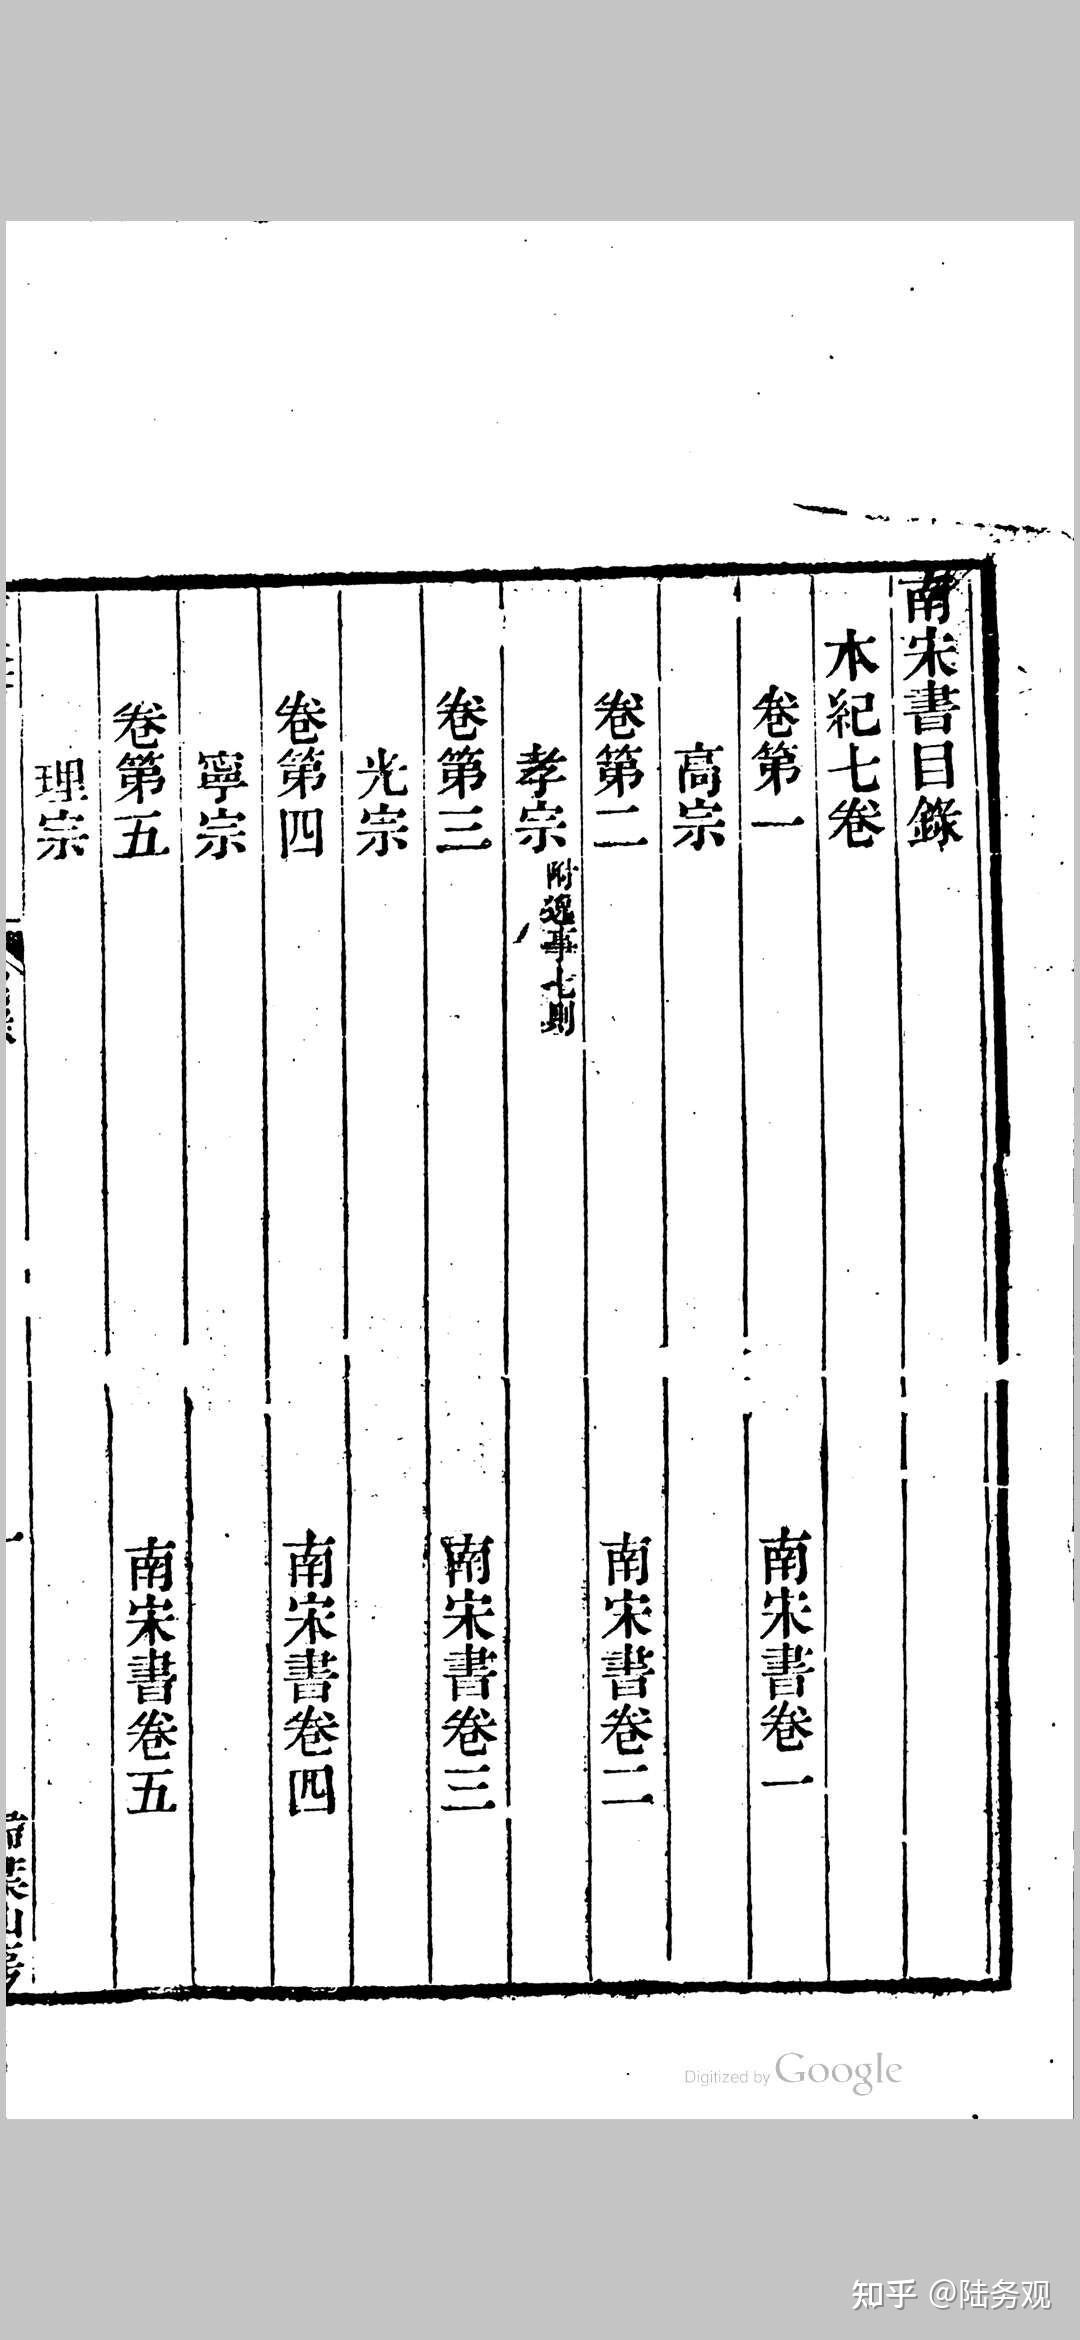 南宋書目錄
本紀七卷
卷第一 南宋書卷一
高宗
卷第二 南宋書卷二
孝宗 附逸事七則
卷第三 南宋書卷三
光宗
卷第四 南宋書卷四
寧宗
卷第五 南宋書卷五
理宗
Digitized by Google
知乎 @陆务观